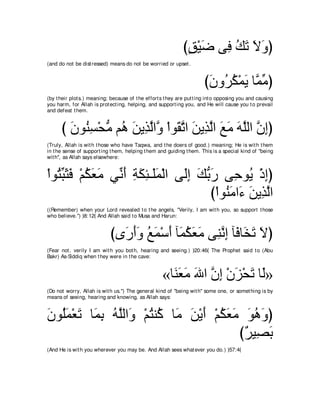 (وَلاَ تَكُ فِى ضَيْقٍ)
(and do not be distressed) means do not be worried or upset.
(مِّمَّا يَمْكُرُونَ)
(by their plots.) meaning; because of the efforts they are putting into opposing you and causing
you harm, for Allah is protecting, helping, and supporting you, and He will cause you to prevail
and defeat them.
(إِنَّ اللَّهَ مَعَ الَّذِينَ اتَّقَواْ وَّالَّذِينَ هُم مُّحْسِنُونَ )
(Truly, Allah is with those who have Taqwa, and the doers of good.) meaning; He is with them
in the sense of supporting them, helping them and guiding them. This is a special kind of "being
with", as Allah says elsewhere:
(إِذْ يُوحِى رَبُّكَ إِلَى الْمَلَـئِكَةِ أَنِّي مَعَكُمْ فَثَبِّتُواْ
الَّذِينَ ءَامَنُواْ)
((Remember) when your Lord revealed to the angels, "Verily, I am with you, so support those
who believe.") (8:12) And Allah said to Musa and Harun:
(لاَ تَخَافَآ إِنَّنِى مَعَكُمَآ أَسْمَعُ وَأَرَى)
(Fear not, verily I am with you both, hearing and seeing.) )20:46( The Prophet said to (Abu
Bakr) As-Siddiq when they were in the cave:
«لَا تَحْزَنْ إِنَّ اللهَ مَعَنَا»
(Do not worry, Allah is with us.") The general kind of "being with" some one, or something is by
means of seeing, hearing and knowing, as Allah says:
(وَهُوَ مَعَكُمْ أَيْنَ مَا كُنتُمْ وَاللَّهُ بِمَا تَعْمَلُونَ
بَصِيرٌ)
(And He is with you wherever you may be. And Allah sees whatever you do.) )57:4(